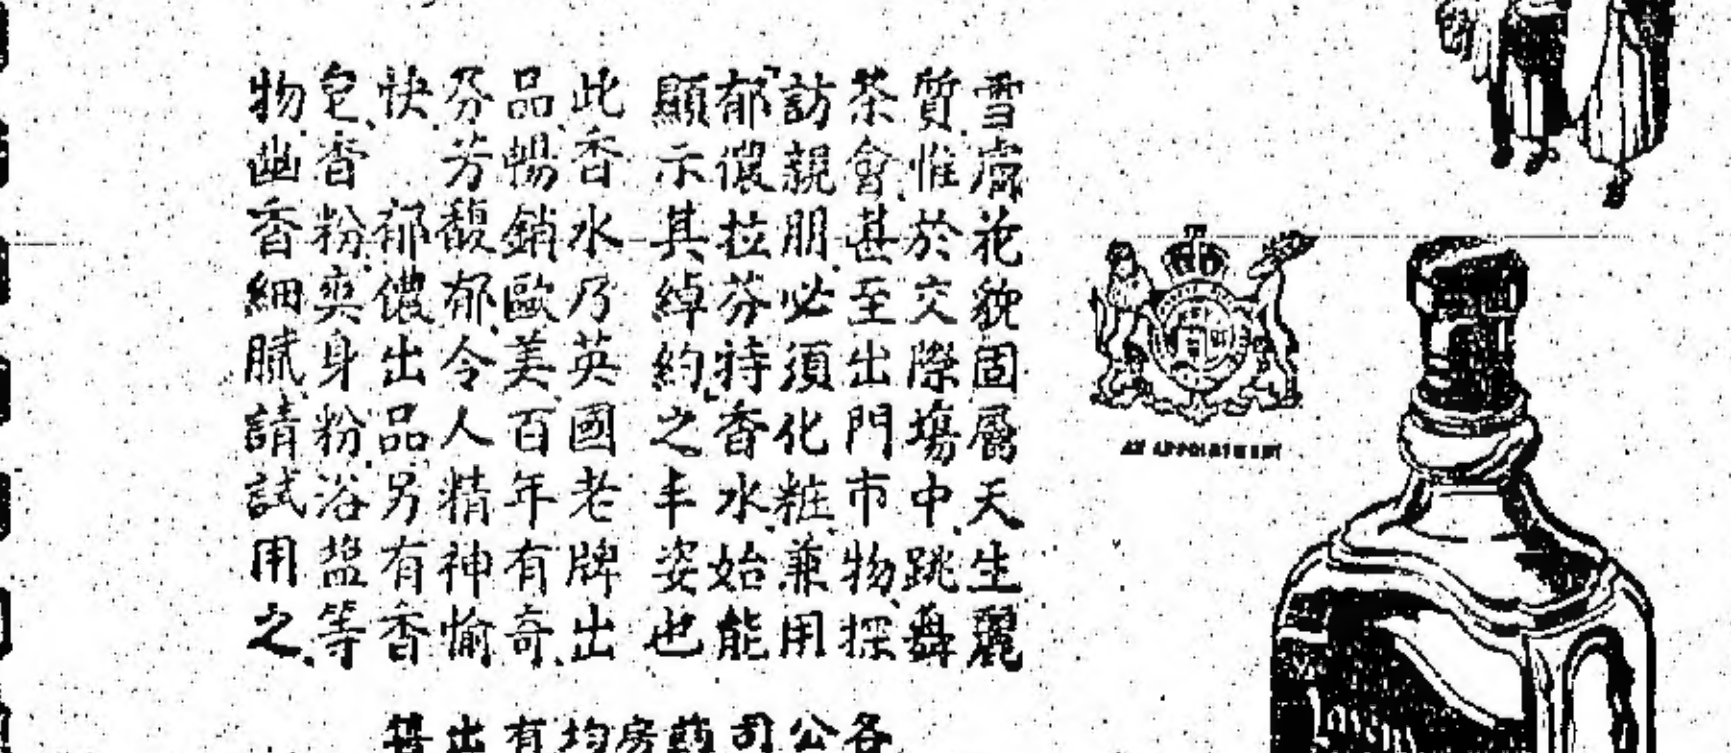 雪膚花貌固屬天生麗
質.惟於交際塲中.跳舞
茶會.甚至出門市物.探
訪親朋.必須化粧.兼用
「郁儂拉芬特香水.始能
顯示其綽約」之丰姿也
此香水乃英國老牌出
品.暢銷歐美.百年有奇.
芬芳馥郁.令人精神愉
快.郁儂出品.另有香
皂.香粉.爽身粉.浴盐等
物.幽香細膩.請試用之.
各公司葯房均有出售
AN APPOINTMENT